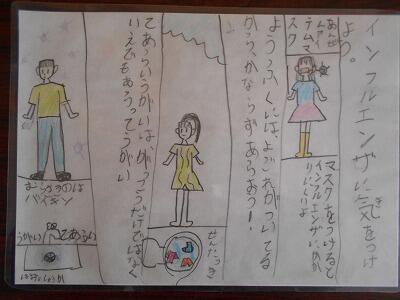 インフルエンザに気をつけ
よう。
マスク
マスクをつけると
インフルエンザにかか
りにくいよ
ようふくには、よごれがついてる
から、かならずあらおう!
せんたっき
てあらいうがいは、がっこうだけではなく
いえでもあらってうがい
むらさきのは
バイキン
うがい
てあらい